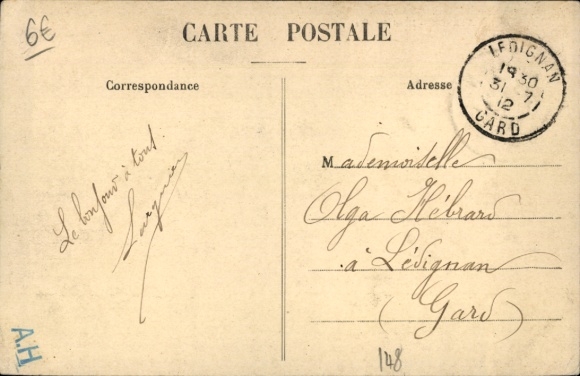 6€
CARTE POSTALE
Correspondance
Adresse
LEDIGNAN
1930
31-7
12
GARD
Le bonjour à tous
Mademoiselle
Olga Hébrard
à Lédignan
(Gard)
A.H
148